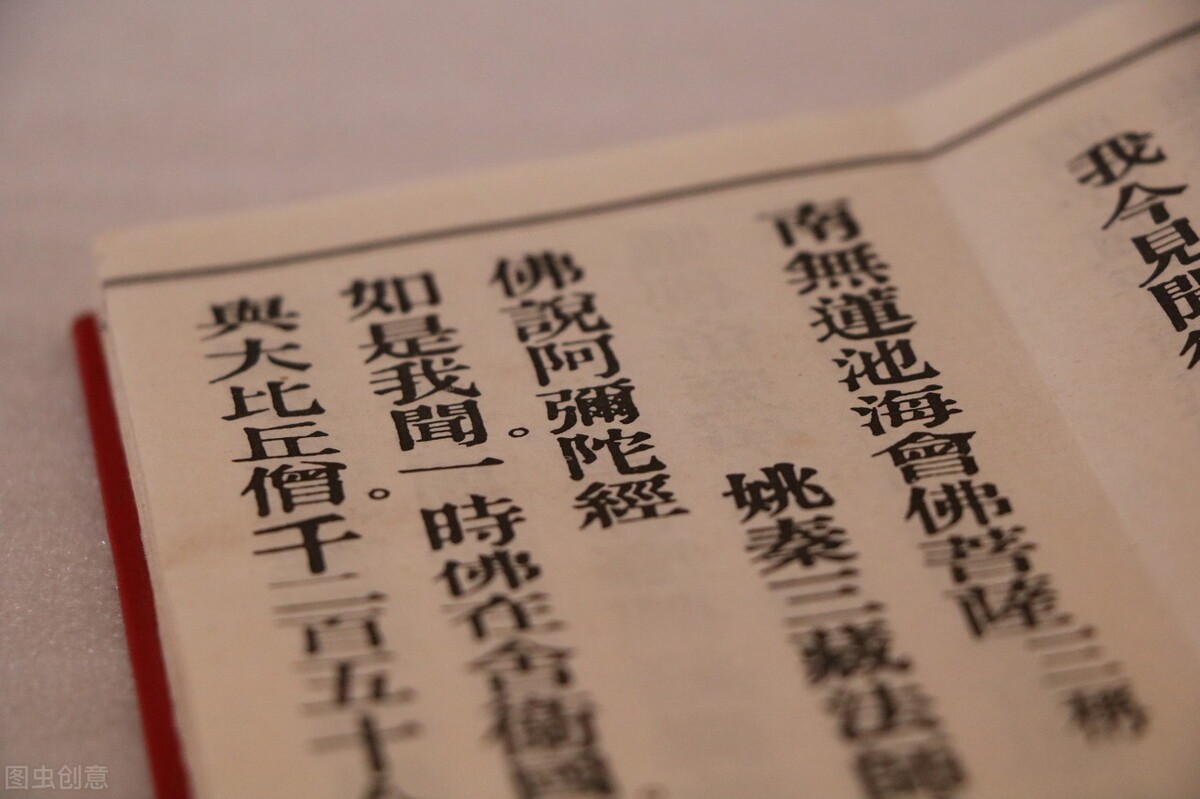 我今見聞
南無蓮池海會佛菩薩三稱
姚秦三藏法師
佛說阿彌陀經
如是我聞。一時佛在舍衛國
與大比丘僧。千二百五十人
图虫创意